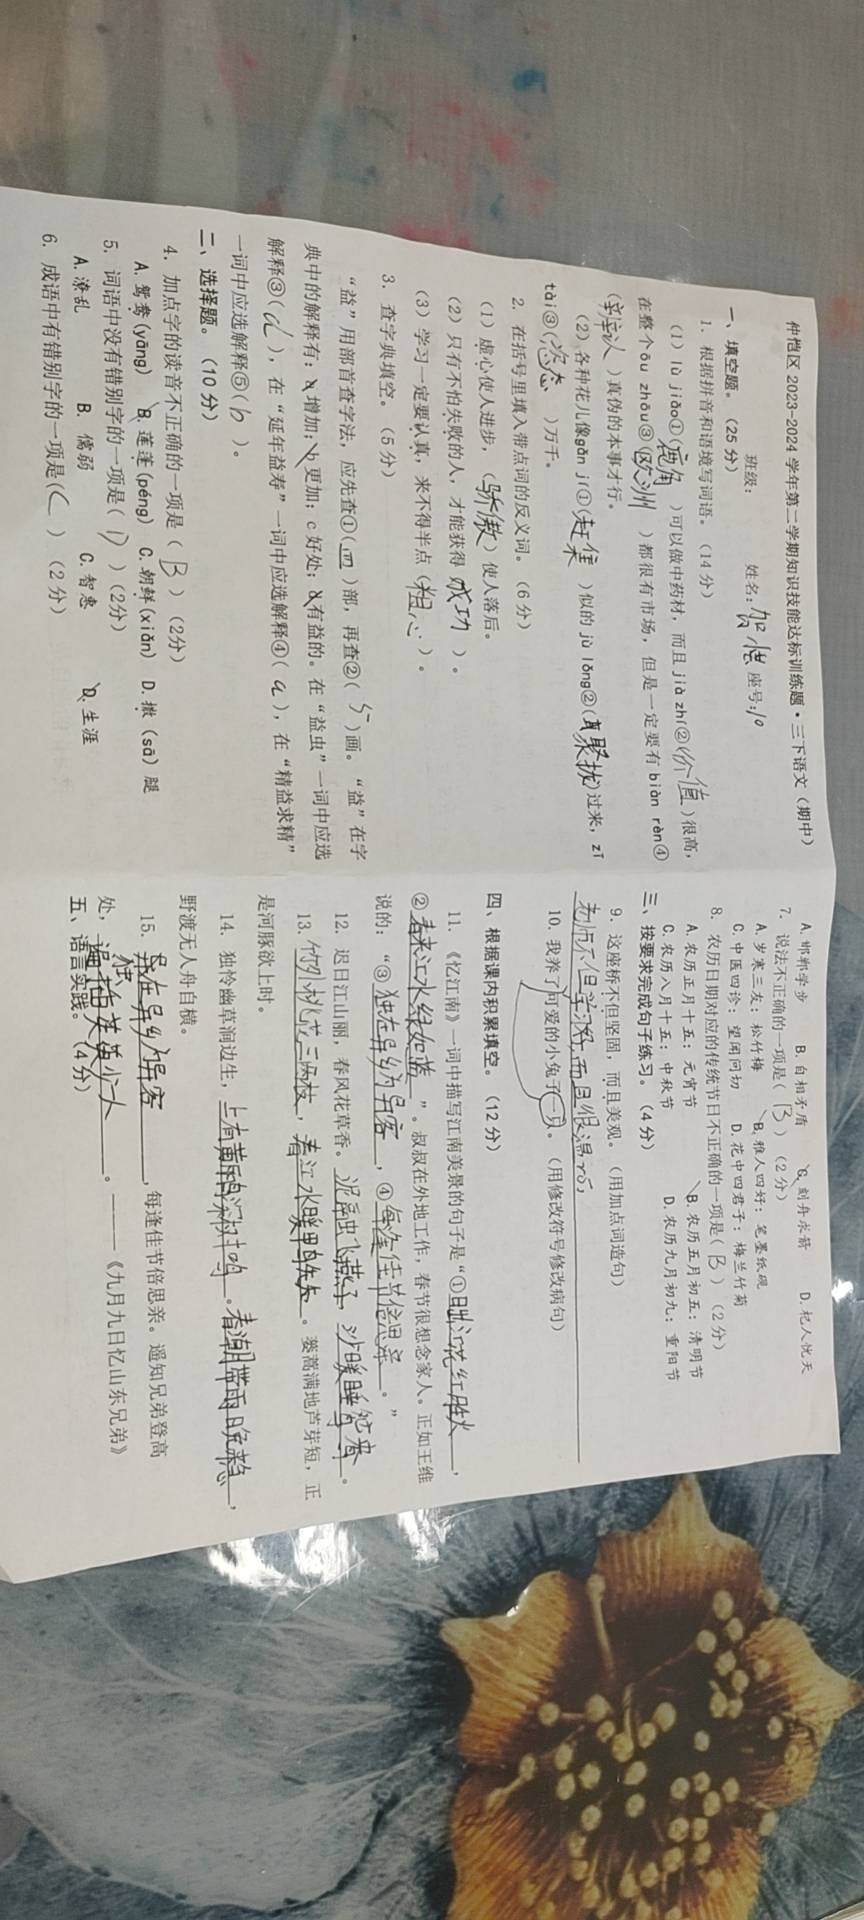 仲恺区 2023-2024 学年第二学期知识技能达标训练题·三下语文（期中）
班级： 姓名： 座号：10
一、填空题。（25 分）
1. 根据拼音和语境写词语。（14 分）
（1）lù jiǎo①（鹿角）可以做中药材，而且 jià zhí②（价值）很高，
在整个ōu zhōu③（欧洲）都很有市场，但是一定要有 biàn rèn④
（辛认）真伪的本事才行。
（2）各种花儿像gǎn jí①（赶集）似的 jù lǒng②（聚拢）过来，zī
tài③（姿态）万千。
2. 在括号里填入带点词的反义词。（6 分）
（1）虚心使人进步，（骄傲）使人落后。
（2）只有不怕失败的人，才能获得（成功）。
（3）学习一定要认真，来不得半点（粗心）。
3. 查字典填空。（5 分）
“益”用部首查字法，应先查①（皿）部，再查②（5）画。“益”在字
典中的解释有：a 增加；b 更加；c 好处；d 有益的。在“益虫”一词中应选
解释③（d），在“延年益寿”一词中应选解释④（a），在“精益求精”
一词中应选解释⑤（b）。
二、选择题。（10 分）
4. 加点字的读音不正确的一项是（B）（2分）
A. 鸳鸯(yāng) B. 莲蓬(péng) C. 朝鲜(xiǎn) D. 撒（sā）腿
5. 词语中没有错别字的一项是（D）（2分）
A. 潦乱 B. 儒弱 C. 智惠 D. 生涯
6. 成语中有错别字的一项是（C）（2 分）
A. 邯郸学步 B. 自相矛盾 C. 刻舟求箭 D. 杞人忧天
7. 说法不正确的一项是（B）（2 分）
A. 岁寒三友：松竹梅 B. 雅人四好：笔墨纸砚
C. 中医四诊：望闻问切 D. 花中四君子：梅兰竹菊
8. 农历日期对应的传统节日不正确的一项是（B）（2 分）
A. 农历正月十五：元宵节 B. 农历五月初五：清明节
C. 农历八月十五：中秋节 D. 农历九月初九：重阳节
三、按要求完成句子练习。（4 分）
9. 这座桥不但坚固，而且美观。（用加点词造句）
老师不但学深，而且很温róu
10. 我养了可爱的小兔子一只。（用修改符号修改病句）
四、根据课内积累填空。（12 分）
11.《忆江南》一词中描写江南美景的句子是“①日出江花红胜火，
②春来江水绿如蓝”。叔叔在外地工作，春节很想念家人。正如王维
说的：“③独在异乡为异客，④每逢佳节倍思亲。”
12. 迟日江山丽，春风花草香。泥融飞燕子，沙暖睡鸳鸯。
13. 竹外桃花三两枝，春江水暖鸭先知。蒌蒿满地芦芽短，正
是河豚欲上时。
14. 独怜幽草涧边生，上有黄鹂深树鸣。春潮带雨晚来急，
野渡无人舟自横。
15. 独在异乡为异客，每逢佳节倍思亲。遥知兄弟登高
处，遍插茱萸少一人。——《九月九日忆山东兄弟》
五、语言实践。（4 分）